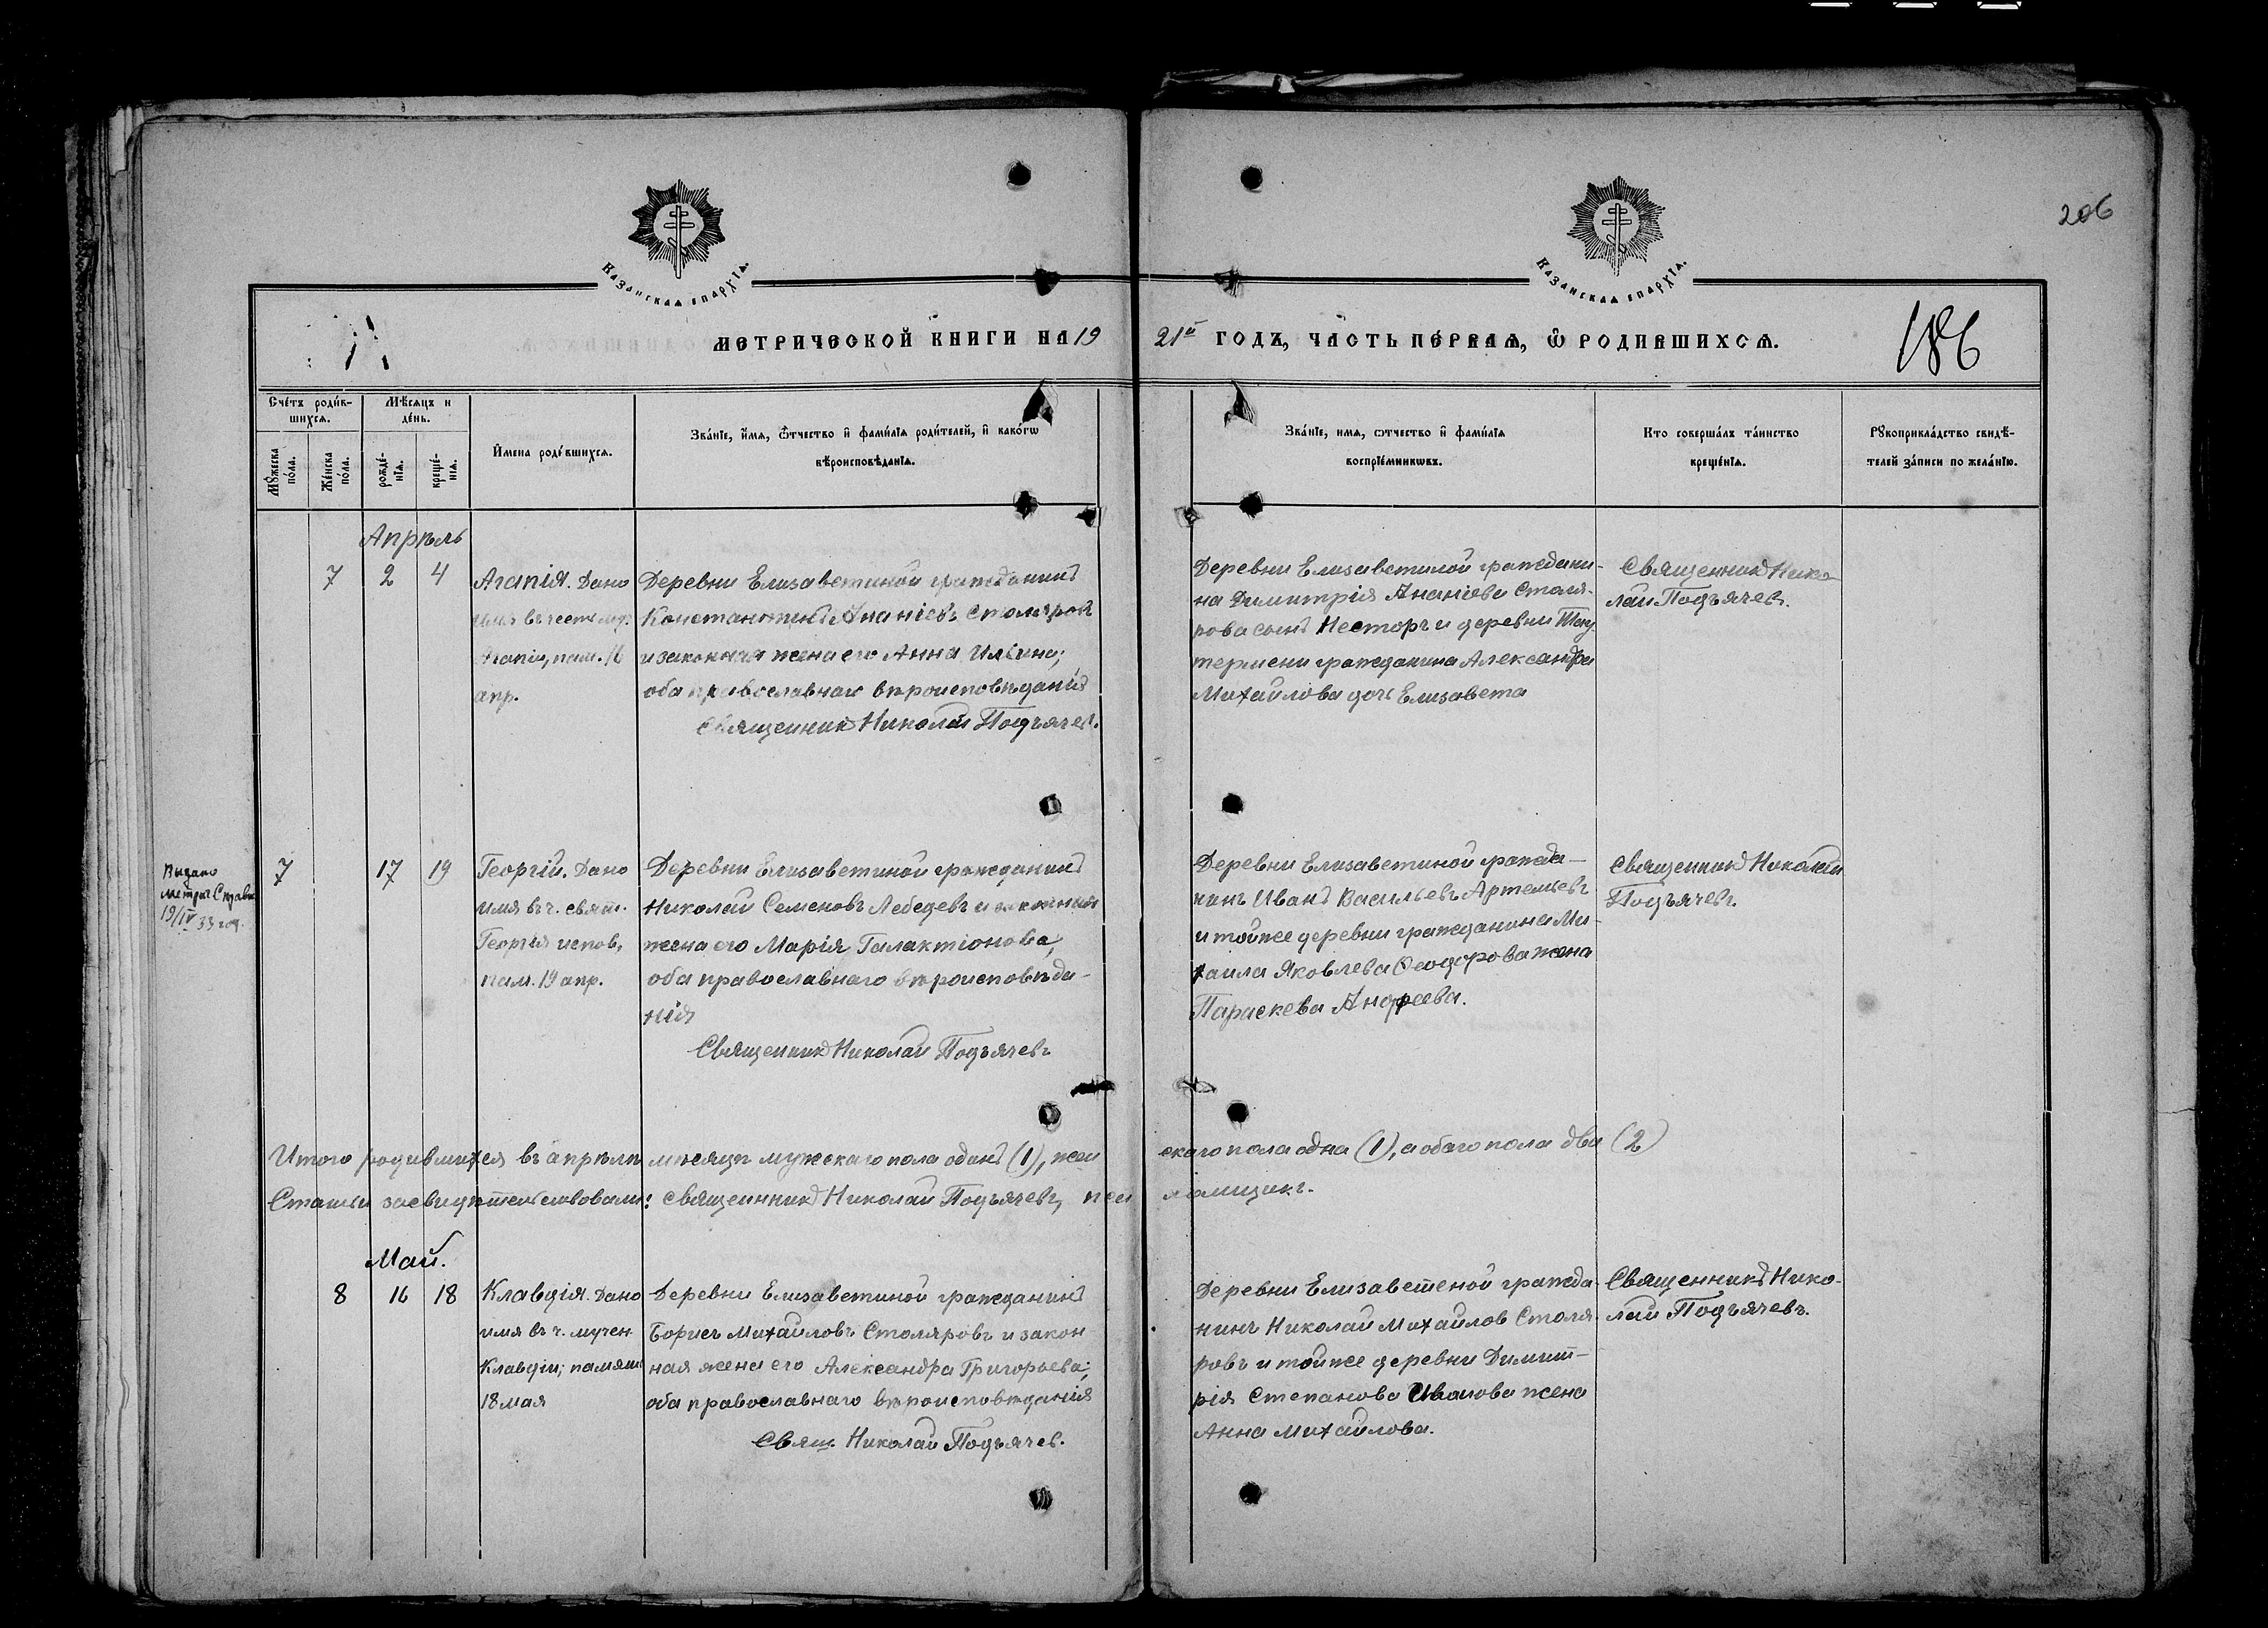 206
Казанская епархія.
Казанская епархія.
МЕТРИЧЕСКОЙ КНИГИ НА 19
21й ГОДЪ, ЧАСТЬ ПЕРВАЯ, Ѡ РОДИВШИХСЯ.
186
Счетъ родив-
шихся.
Мѣсяцъ и
день.
Мꙋжеска
пола.
Женска
пола.
рожде-
нія.
креще-
нія.
Имена родившихся.
Званіе, имя, ѿчество и фамилія родителей, и какогѡ
вѣроисповѣданія.
Званіе, имя, ѡтчество и фамилія
воспріемникѡвъ.
Кто совершалъ таинство
крещенія.
Рꙋкоприкладство свидѣ-
телей записи по желанію.
Апрѣль
7 2 4
Агапія. Дано
имя въ честь муч.
Агапіи, пам. 16
апр.
Деревни Елизаветиной гражданинъ
Константинъ Ананіевъ Столяровъ
и законная жена его Анна Ильина;
оба православнаго вѣроисповѣданія
Священникъ Николай Подъячевъ.
Деревни Елизаветиной граждани-
на Димитрія Ананіева Столя-
рова сынъ Несторъ и деревни
термени гражданина Александра
Михайлова дочь Елизавета
Священникъ Нико-
лай Подъячевъ.
Выдано
метрич. Справка
19/IV 33 год.
7 17 19
Георгій. Дано
имя въ ч. свят.
Георгія испов,
пам. 19 апр.
Деревни Елизаветиной гражданинъ
Николай Семеновъ Лебедевъ и законная
жена его Марія Галактіонова,
оба православнаго вѣроисповѣда-
нія
Священникъ Николай Подъячевъ
Деревни Елизаветиной гражда-
нинъ Иванъ Васильевъ Артемьевъ
и тойже деревни гражданина Ми-
хаила Яковлева Ѳеодорова жена
Параскева Андреева.
Священникъ Николай
Подъячевъ.
Итого родившихся въ апрѣлѣ мѣсяцѣ мужскаго пола одинъ (1), жен
скаго пола одна (1), а обаго пола два (2)
Статьи засвидѣтельствовали: Священникъ Николай Подъячевъ, псаломщикъ.
Май.
8 16 18
Клавдія. Дано
имя въ ч. мучен.
Клавдіи; память
18 мая
Деревни Елизаветиной гражданинъ
Борисъ Михайловъ Столяровъ и закон
ная жена его Александра Григорьева;
оба православнаго вѣроисповѣданія
Свящ. Николай Подъячев.
Деревни Елизаветеной гражда-
нинъ Николай Михайлов Столя-
ровъ и тойже деревни Димит-
рія Степанова Иванова жена
Анна Михайлова.
Священникъ Нико-
лай Подъячевъ.